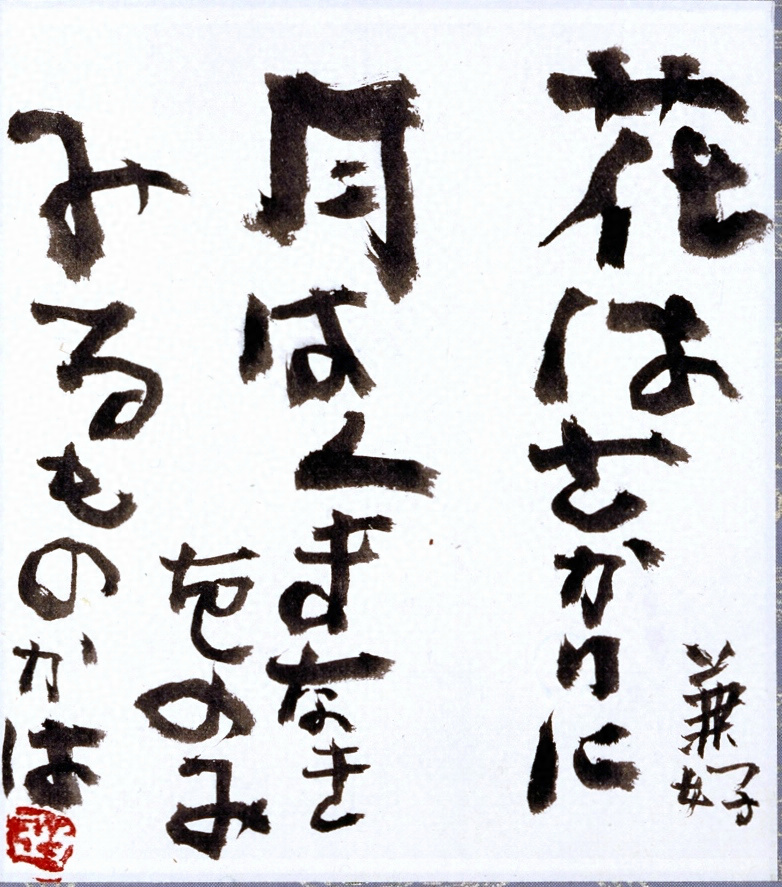 兼好
花はさかりに
月はくまなき
をのみ
みるものかは